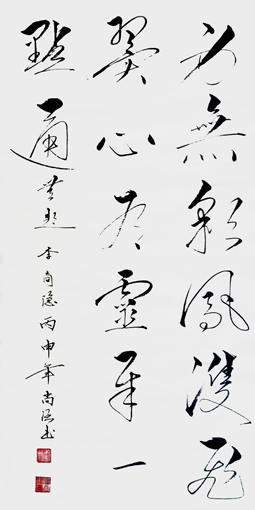 身無彩鳳雙飛
翼心有靈犀一
點通 無題 李商隱 丙申年尚書